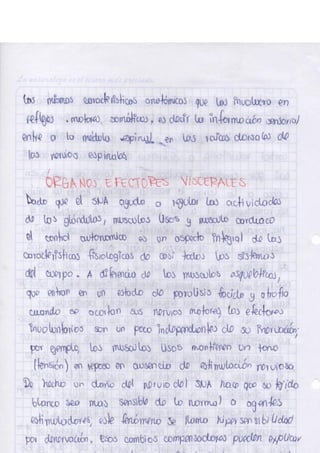 La naturaleza es el tesoro más preciado.
las mismas características anatómicas que los involucra en
reflejos .motores, somáticos, es decir la información sensorial
entre a la médula espinal en las raíces dorsales de
los nervios espinales
ÓRGANOS EFECTORES VISCERALES
Dado que el SNA ayuda a regular las actividades
de las glándulas, musculos lisos y musculo cardiaco
el control autonomico es un aspecto integral de las
características fisiologicas de casi todos los sistemas
del cuerpo. A diferencia de los musculos esqueléticos,
que entran en un estado de paralisis flacida y atrofia
cuando se cortan sus nervios motores, los efectores
involuntarios son un poco independientes de su inervación,
por ejemplo, los musculos lisos mantienen un tono
(tensión) en reposo en ausencia de estimulación nerviosa.
De hecho un daño del nervio del SNA hace que su tejido
blanco sea mas sensible de lo normal a agentes
estimuladores, este fenómeno se llama hipersensibilidad
por denervación. Esos cambios compensadores pueden explicar